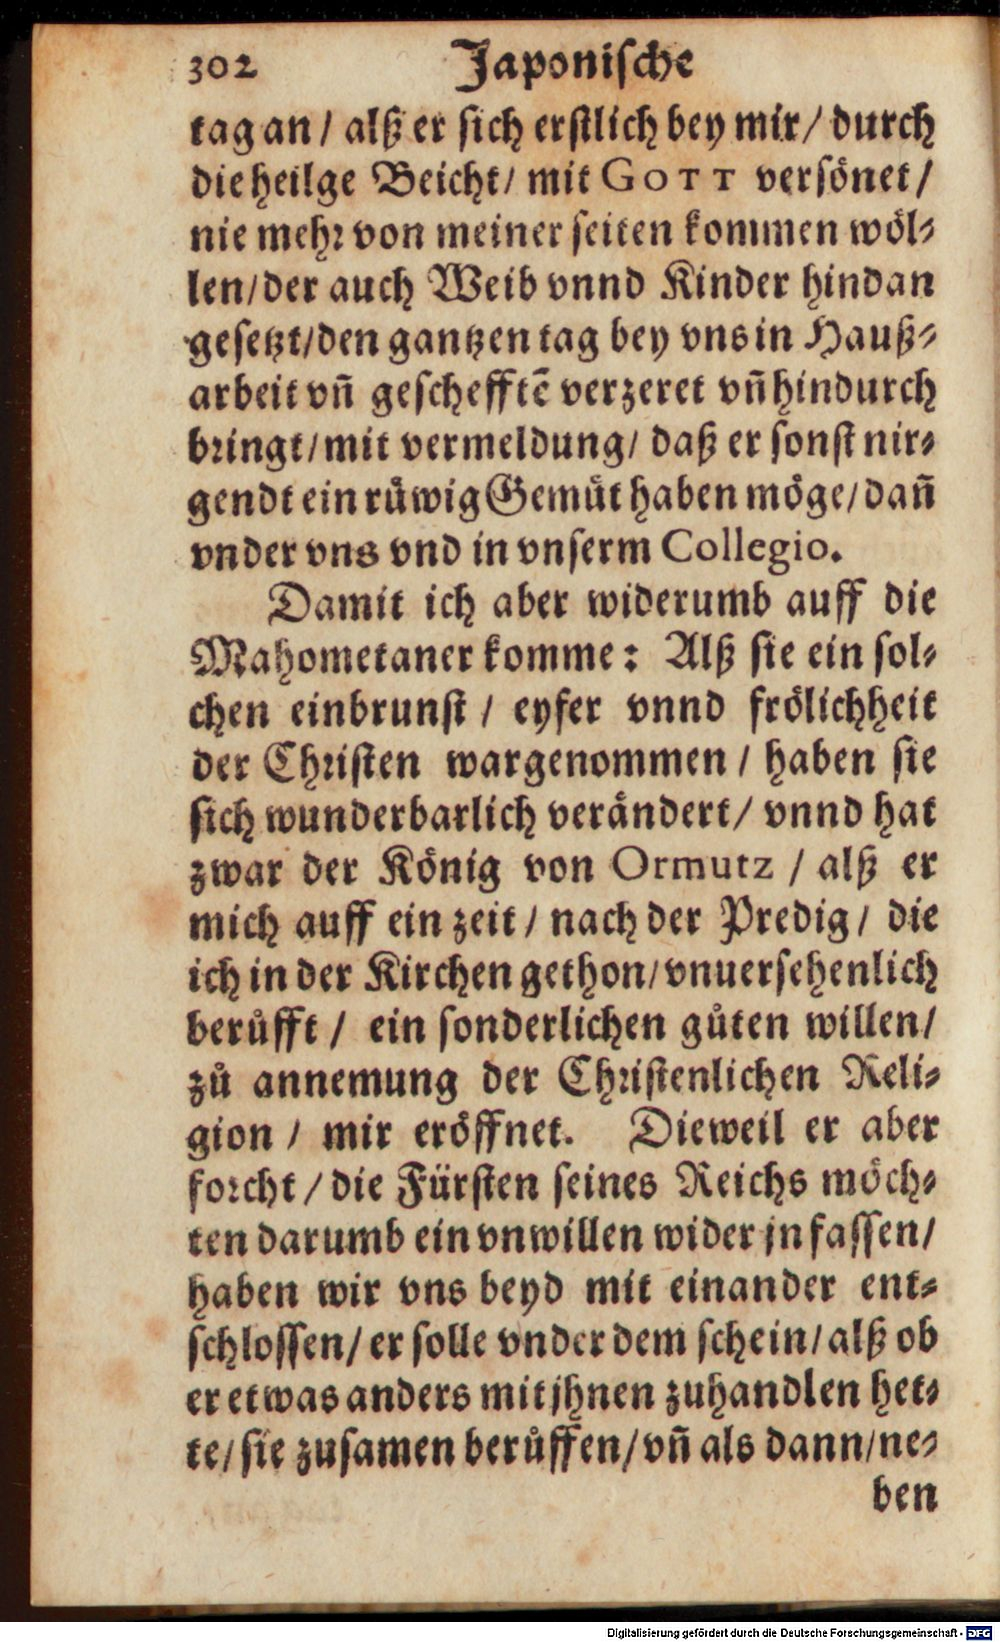 302 Japonische
tag an / alß er sich erstlich bey mir / durch
die heilge Beicht / mit GOTT versönet /
nie mehr von meiner seiten kommen wöl⸗
len / der auch Weib vnnd Kinder hindan
gesetzt / den gantzen tag bey vns in Hauß⸗
arbeit vñ geschefftẽ verzeret vñ hindurch
bringt / mit vermeldung / daß er sonst nir⸗
gendt ein rüwig Gemüt haben möge / dañ
vnder vns vnd in vnserm Collegio.
Damit ich aber widerumb auff die
Mahometaner komme: Alß sie ein sol⸗
chen einbrunst / eyfer vnnd frölichheit
der Christen wargenommen / haben sie
sich wunderbarlich verändert / vnnd hat
zwar der König von Ormutz / alß er
mich auff ein zeit / nach der Predig / die
ich in der Kirchen gethon / vnuersehenlich
berůfft / ein sonderlichen gůten willen /
zů annemung der Christenlichen Reli⸗
gion / mir eröffnet. Dieweil er aber
forcht / die Fürsten seines Reichs möch⸗
ten darumb ein vnwillen wider jn fassen /
haben wir vns beyd mit einander ent⸗
schlossen / er solle vnder dem schein / alß ob
er etwas anders mit jhnen zuhandlen het⸗
te / sie zusamen berůffen / vñ als dann / ne⸗
ben
Digitalisierung gefördert durch die Deutsche Forschungsgemeinschaft - DFG